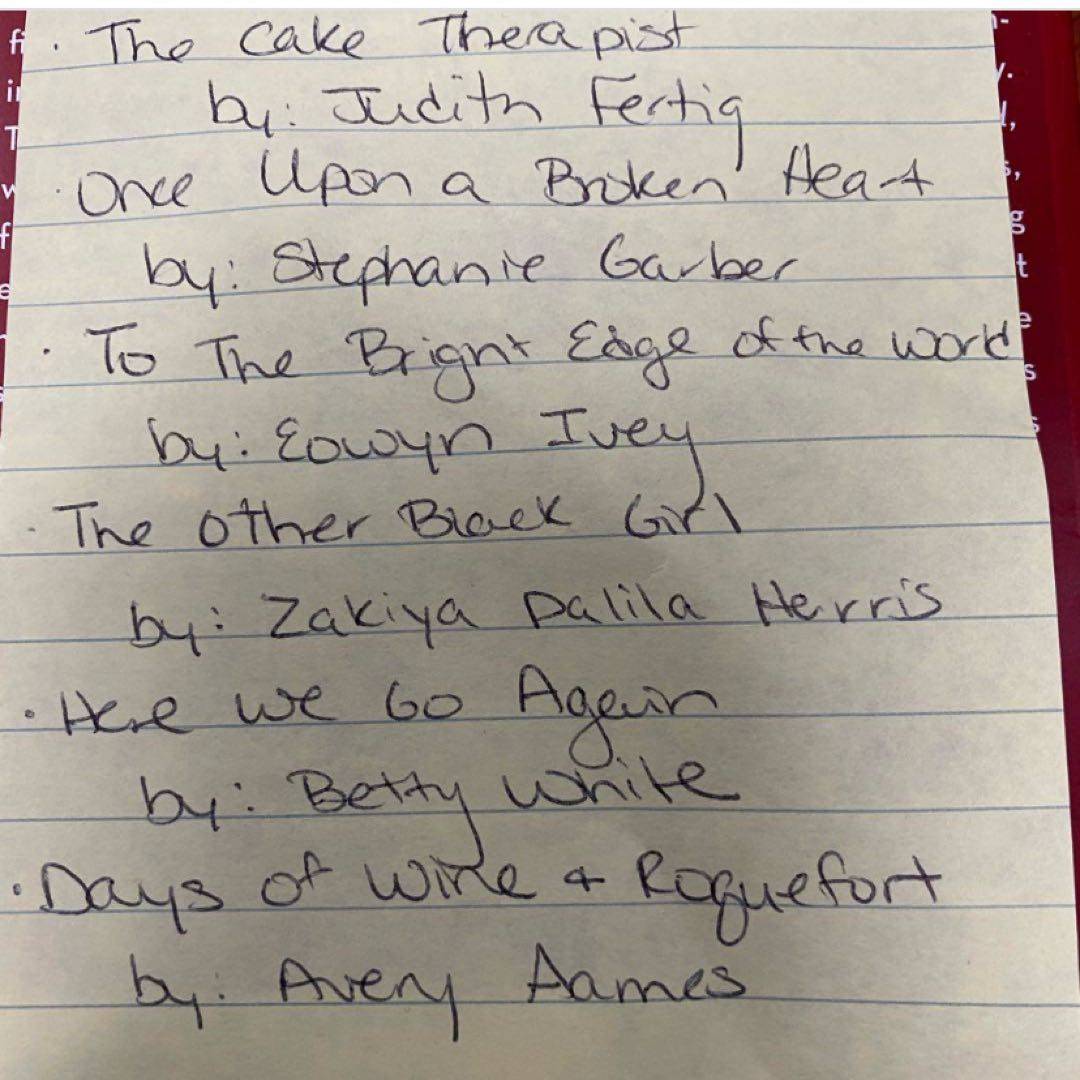 · The Cake Therapist
by: Judith Fertig
· Once Upon a Broken Heart
by: Stephanie Garber
· To The Bright Edge of the World
by: Eowyn Ivey
· The Other Black Girl
by: Zakiya Dalila Herris
· Here We Go Again
by: Betty White
· Days of Wine & Roquefort
by: Avery Aames